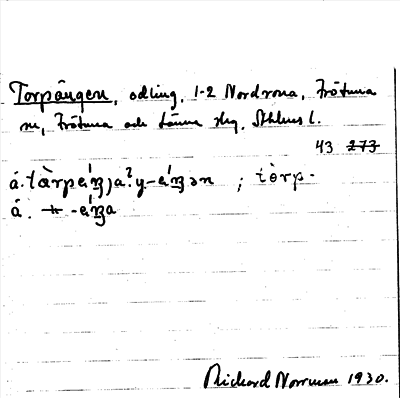 Torpängen, odling, 1-2 Nordrona, Frötuna
sn, Frötuna och Länna skg. Sthlms l.
43 273
å.
; tòrp-
å.
Rickard Norrman 1930.